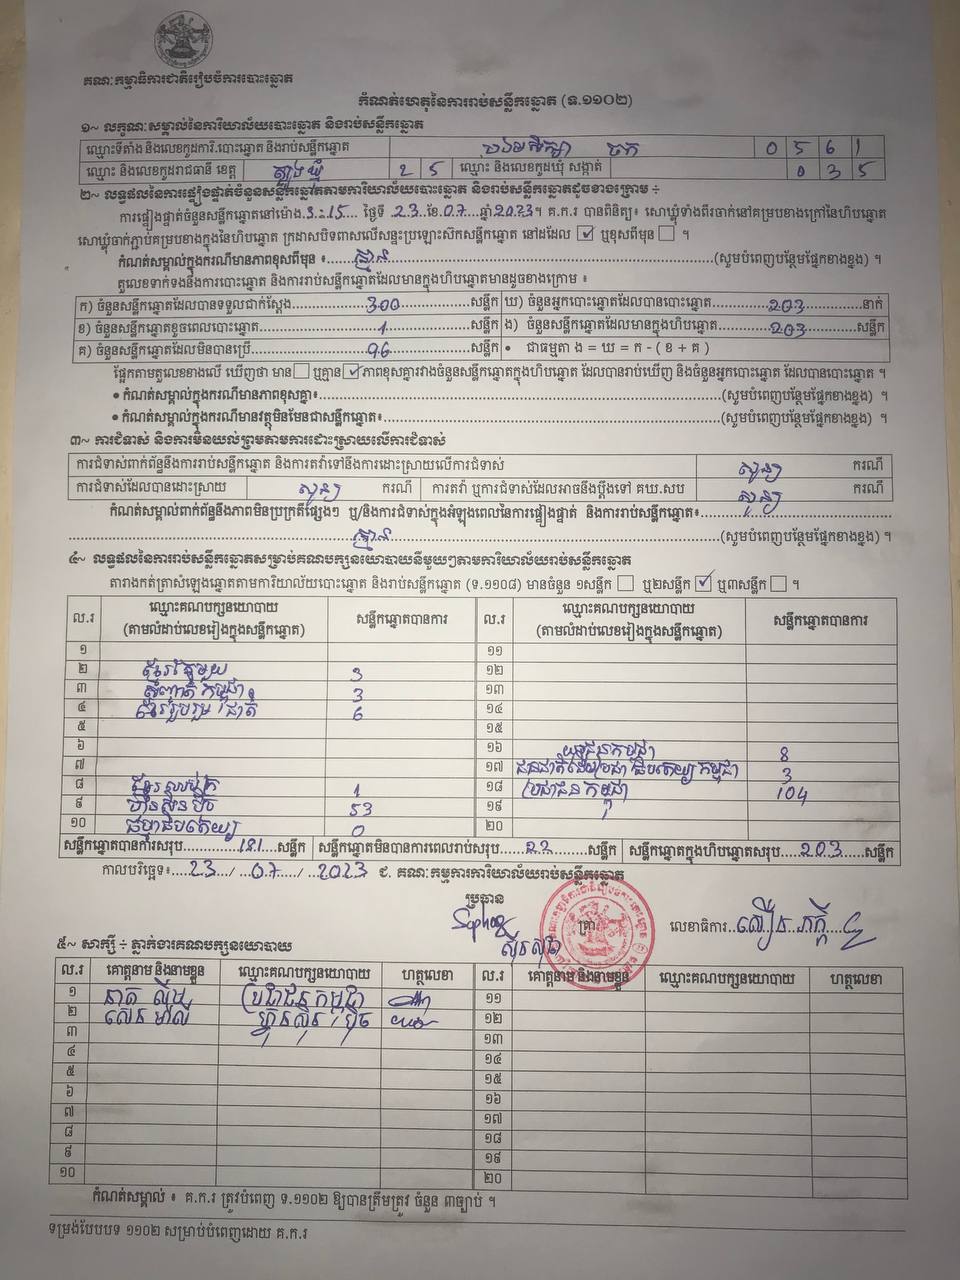 គណៈកម្មាធិការជាតិរៀបចំការបោះឆ្នោត
កំណត់ហេតុនៃការរាប់សន្លឹកឆ្នោត (ទ.១១០២)
១~ លក្ខណៈសម្គាល់នៃការិយាល័យបោះឆ្នោត និងរាប់សន្លឹកឆ្នោត
ឈ្មោះទីតាំង និងលេខកូដការិ.បោះឆ្នោត និងរាប់សន្លឹកឆ្នោត 0 5 6 1
ឈ្មោះ និងលេខកូដរាជធានី ខេត្ត ត្បូងឃ្មុំ 2 5 ឈ្មោះ និងលេខកូដឃុំ សង្កាត់ 0 3 5
២~ លទ្ធផលនៃការផ្ទៀងផ្ទាត់ចំនួនសន្លឹកឆ្នោតតាមការិយាល័យបោះឆ្នោត និងរាប់សន្លឹកឆ្នោតដូចខាងក្រោម ÷
ការផ្ទៀងផ្ទាត់ចំនួនសន្លឹកឆ្នោតនៅម៉ោង 3:15 ថ្ងៃទី 23 ខែ 07 ឆ្នាំ 2023។ គ.ក.រ បានពិនិត្យ៖ សោឃ្លុំទាំងពីរចាក់នៅគម្របខាងក្រៅនៃហិបឆ្នោត
សោឃ្លុំចាក់ភ្ជាប់គម្របខាងក្នុងនៃហិបឆ្នោត ក្រដាសបិទពាសលើសន្ទះប្រឡោះស៊កសន្លឹកឆ្នោត នៅដដែល ✓ ឬខុសពីមុន ។
កំណត់សម្គាល់ក្នុងករណីមានភាពខុសពីមុន ៖ គ្មាន (សូមបំពេញបន្ថែមផ្នែកខាងខ្នង) ។
តួលេខទាក់ទងនឹងការបោះឆ្នោត និងការរាប់សន្លឹកឆ្នោតដែលមានក្នុងហិបឆ្នោតមានដូចខាងក្រោម ៖
ក) ចំនួនសន្លឹកឆ្នោតដែលបានទទួលជាក់ស្តែង 300 សន្លឹក ឃ) ចំនួនអ្នកបោះឆ្នោតដែលបានបោះឆ្នោត 203 នាក់
ខ) ចំនួនសន្លឹកឆ្នោតខូចពេលបោះឆ្នោត 1 សន្លឹក ង) ចំនួនសន្លឹកឆ្នោតដែលមានក្នុងហិបឆ្នោត 203 សន្លឹក
គ) ចំនួនសន្លឹកឆ្នោតដែលមិនបានប្រើ 96 សន្លឹក • ជាធម្មតា ង = ឃ = ក - ( ខ + គ )
ផ្អែកតាមតួលេខខាងលើ ឃើញថា មាន ឬគ្មាន ✓ ភាពខុសគ្នារវាងចំនួនសន្លឹកឆ្នោតក្នុងហិបឆ្នោត ដែលបានរាប់ឃើញ និងចំនួនអ្នកបោះឆ្នោត ដែលបានបោះឆ្នោត ។
• កំណត់សម្គាល់ក្នុងករណីមានភាពខុសគ្នា៖ (សូមបំពេញបន្ថែមផ្នែកខាងខ្នង) ។
• កំណត់សម្គាល់ក្នុងករណីមានវត្ថុមិនមែនជាសន្លឹកឆ្នោត៖ (សូមបំពេញបន្ថែមផ្នែកខាងខ្នង) ។
៣~ ការជំទាស់ និងការមិនយល់ព្រមតាមការដោះស្រាយលើការជំទាស់
ការជំទាស់ពាក់ព័ន្ធនឹងការរាប់សន្លឹកឆ្នោត និងការតវ៉ាទៅនឹងការដោះស្រាយលើការជំទាស់ សូន្យ ករណី
ការជំទាស់ដែលបានដោះស្រាយ សូន្យ ករណី ការតវ៉ា ឬការជំទាស់ដែលអាចនឹងប្តឹងទៅ គឃ.សប សូន្យ ករណី
កំណត់សម្គាល់ពាក់ព័ន្ធនឹងភាពមិនប្រក្រតីផ្សេងៗ ឬ/និងការជំទាស់ក្នុងអំឡុងពេលនៃការផ្ទៀងផ្ទាត់ និងការរាប់សន្លឹកឆ្នោត៖
គ្មាន (សូមបំពេញបន្ថែមផ្នែកខាងខ្នង) ។
៤~ លទ្ធផលនៃការរាប់សន្លឹកឆ្នោតសម្រាប់គណបក្សនយោបាយនីមួយៗតាមការិយាល័យរាប់សន្លឹកឆ្នោត
តារាងកត់ត្រាសំឡេងឆ្នោតតាមការិយាល័យបោះឆ្នោត និងរាប់សន្លឹកឆ្នោត (ទ.១១០៨) មានចំនួន ១សន្លឹក ឬ២សន្លឹក ✓ ឬ៣សន្លឹក ។
ល.រ ឈ្មោះគណបក្សនយោបាយ (តាមលំដាប់លេខរៀងក្នុងសន្លឹកឆ្នោត) សន្លឹកឆ្នោតបានការ ល.រ ឈ្មោះគណបក្សនយោបាយ (តាមលំដាប់លេខរៀងក្នុងសន្លឹកឆ្នោត) សន្លឹកឆ្នោតបានការ
១ ១១
២ ខ្មែរតែមួយ 3 ១២
៣ កម្ពុជា 3 ១៣
៤ ខ្មែររួបរួមជាតិ 6 ១៤
៥ ១៥
៦ ១៦ យុវជនកម្ពុជា 8
៧ ១៧ ជនជាតិដើមប្រជាធិបតេយ្យកម្ពុជា 3
៨ 1 ១៨ ប្រជាជនកម្ពុជា 104
៩ ហ៊្វុនស៊ិនប៉ិច 53 ១៩
១០ ធម្មាធិបតេយ្យ 0 ២០
សន្លឹកឆ្នោតបានការសរុប 181 សន្លឹក សន្លឹកឆ្នោតមិនបានការពេលរាប់សរុប 22 សន្លឹក សន្លឹកឆ្នោតក្នុងហិបឆ្នោតសរុប 203 សន្លឹក
កាលបរិច្ឆេទ៖ 23 / 07 / 2023 ជ. គណៈកម្មការការិយាល័យរាប់សន្លឹកឆ្នោត
ប្រធាន
ត្រា លេខាធិការ
៥~ សាក្សី ÷ ភ្នាក់ងារគណបក្សនយោបាយ
ល.រ គោត្តនាម និងនាមខ្លួន ឈ្មោះគណបក្សនយោបាយ ហត្ថលេខា ល.រ គោត្តនាម និងនាមខ្លួន ឈ្មោះគណបក្សនយោបាយ ហត្ថលេខា
១ ប្រជាជនកម្ពុជា ១១
២ ហ៊្វុនស៊ិនប៉ិច ១២
៣ ១៣
៤ ១៤
៥ ១៥
៦ ១៦
៧ ១៧
៨ ១៨
៩ ១៩
១០ ២០
កំណត់សម្គាល់ ៖ គ.ក.រ ត្រូវបំពេញ ទ.១១០២ ឱ្យបានត្រឹមត្រូវ ចំនួន ៣ច្បាប់ ។
ទម្រង់បែបបទ ១១០២ សម្រាប់បំពេញដោយ គ.ក.រ